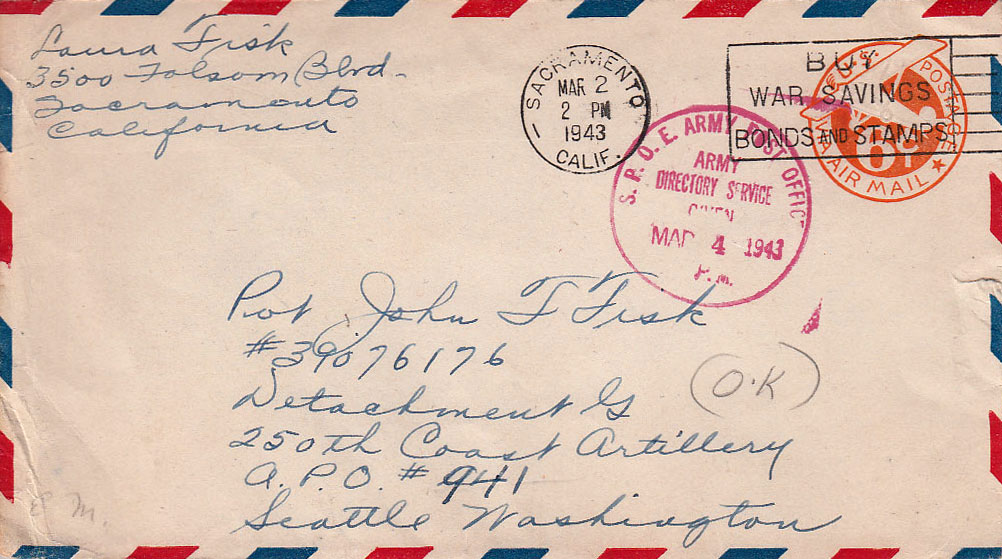 Laura Fisk
3500 Folsom Blvd-
Sacramento
California
SACRAMENTO
CALIF.
MAR 2
2 PM
1943
BUY
WAR SAVINGS
BONDS AND STAMPS
U.S. POSTAGE
VIA AIR MAIL
6¢
S. P. O. E. ARMY POST OFFICE
ARMY
DIRECTORY SERVICE
GIVEN
MAR 4 1943
P.M.
Pvt John T Fisk
#39076176
Detachment G
250th Coast Artillery
A.P.O. #941
Seattle Washington
(O.K)
E M.